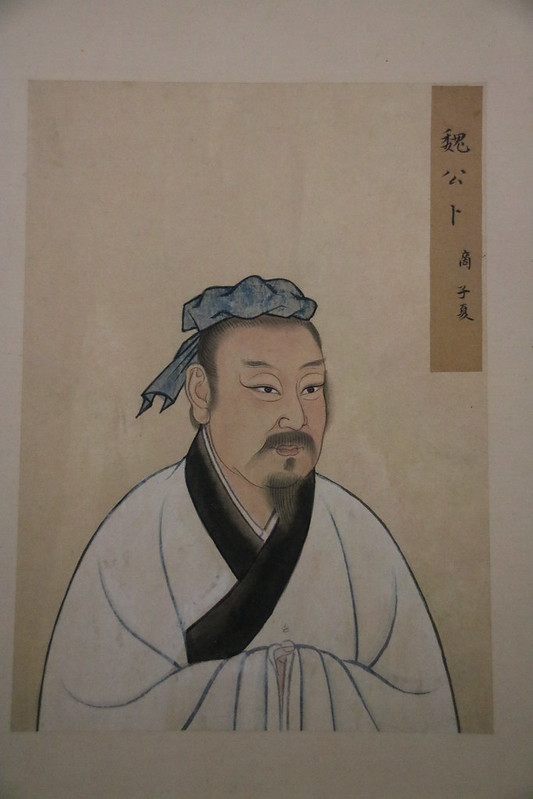 魏公卜商子夏